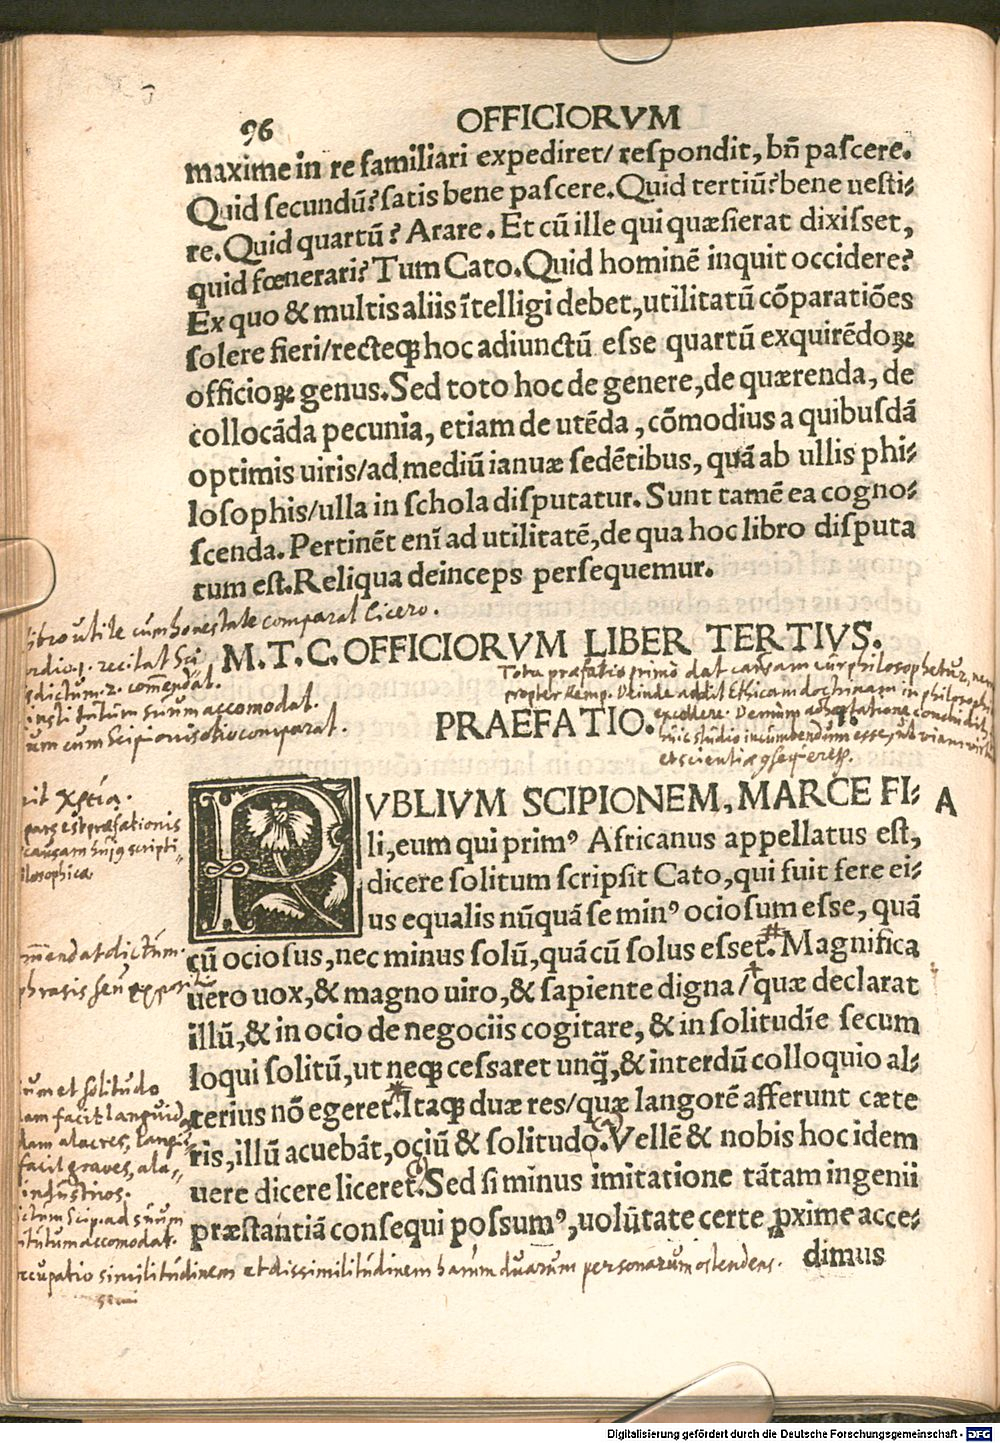 96
OFFICIORVM
maxime in re familiari expediret/ respondit, bñ pascere.
Quid secundũ? satis bene pascere. Quid tertiũ? bene uesti⸗
re. Quid quartũ? Arare. Et cũ ille qui quæsierat dixisset,
quid fœnerari? Tum Cato. Quid hominẽ inquit occidere?
Ex quo & multis aliis ĩtelligi debet, utilitatũ cõparatiões
solere fieri/ recteqꝫ hoc adiunctũ esse quartũ exquirẽdoꝝ
officioꝝ genus. Sed toto hoc de genere, de quærenda, de
collocãda pecunia, etiam de utẽda, cõmodius a quibusdã
optimis uiris/ ad mediũ ianuæ sedẽtibus, quã ab ullis phi⸗
losophis/ ulla in schola disputatur. Sunt tamẽ ea cogno⸗
scenda. Pertinẽt enĩ ad utilitatẽ, de qua hoc libro disputa
tum est. Reliqua deinceps persequemur.
libro utile cum honestate comparat Cicero.
M.T.C. OFFICIORVM LIBER TERTIVS.
recitat Sci
dictum. 2. comẽndat.
institutum suum accomodat.
um cum Scipionis otio comparat.
Tota præfatio primo dat causam cur philosophetur,
propter Remp. Deinde addit Ethicam doctrinam in philosoph
excellere. Demum
huic studio incumbendum esse, ut viam
PRAEFATIO.
χρεία.
pars est præfationis
causam huiꝰ scripti
ilosophica
PVBLIVM SCIPIONEM, MARCE FI⸗
A
li, eum qui primꝰ Africanus appellatus est,
dicere solitum scripsit Cato, qui fuit fere ei⸗
us equalis nũquã se minꝰ ociosum esse, quã
cũ ociosus, nec minus solũ, quã cũ solus esset. Magnifica
uero uox, & magno uiro, & sapiente digna/ quæ declarat
illũ, & in ocio de negociis cogitare, & in solitudĩe secum
loqui solitũ, ut neqꝫ cessaret unq̃, & interdũ colloquio al⸗
terius nõ egeret. Itaqꝫ duæ res/ quæ langorẽ afferunt cæte
ris, illũ acuebãt, ociũ & solitudo. Vellẽ & nobis hoc idem
uere dicere liceret. Sed si minus imitatione tãtam ingenii
præstantiã consequi possumꝰ, uolũtate certe ꝓxime acce⸗
dimus
mendat dictum.
phrasis seu
um et solitudo
facit languid
alacres,
facit graves, ala⸗
industrios.
ctum Scip. ad suum
titutum accomodat.
ccupatio similitudinem et dissimilitudinem harum duarum personarum ostendens.
Digitalisierung gefördert durch die Deutsche Forschungsgemeinschaft - DFG